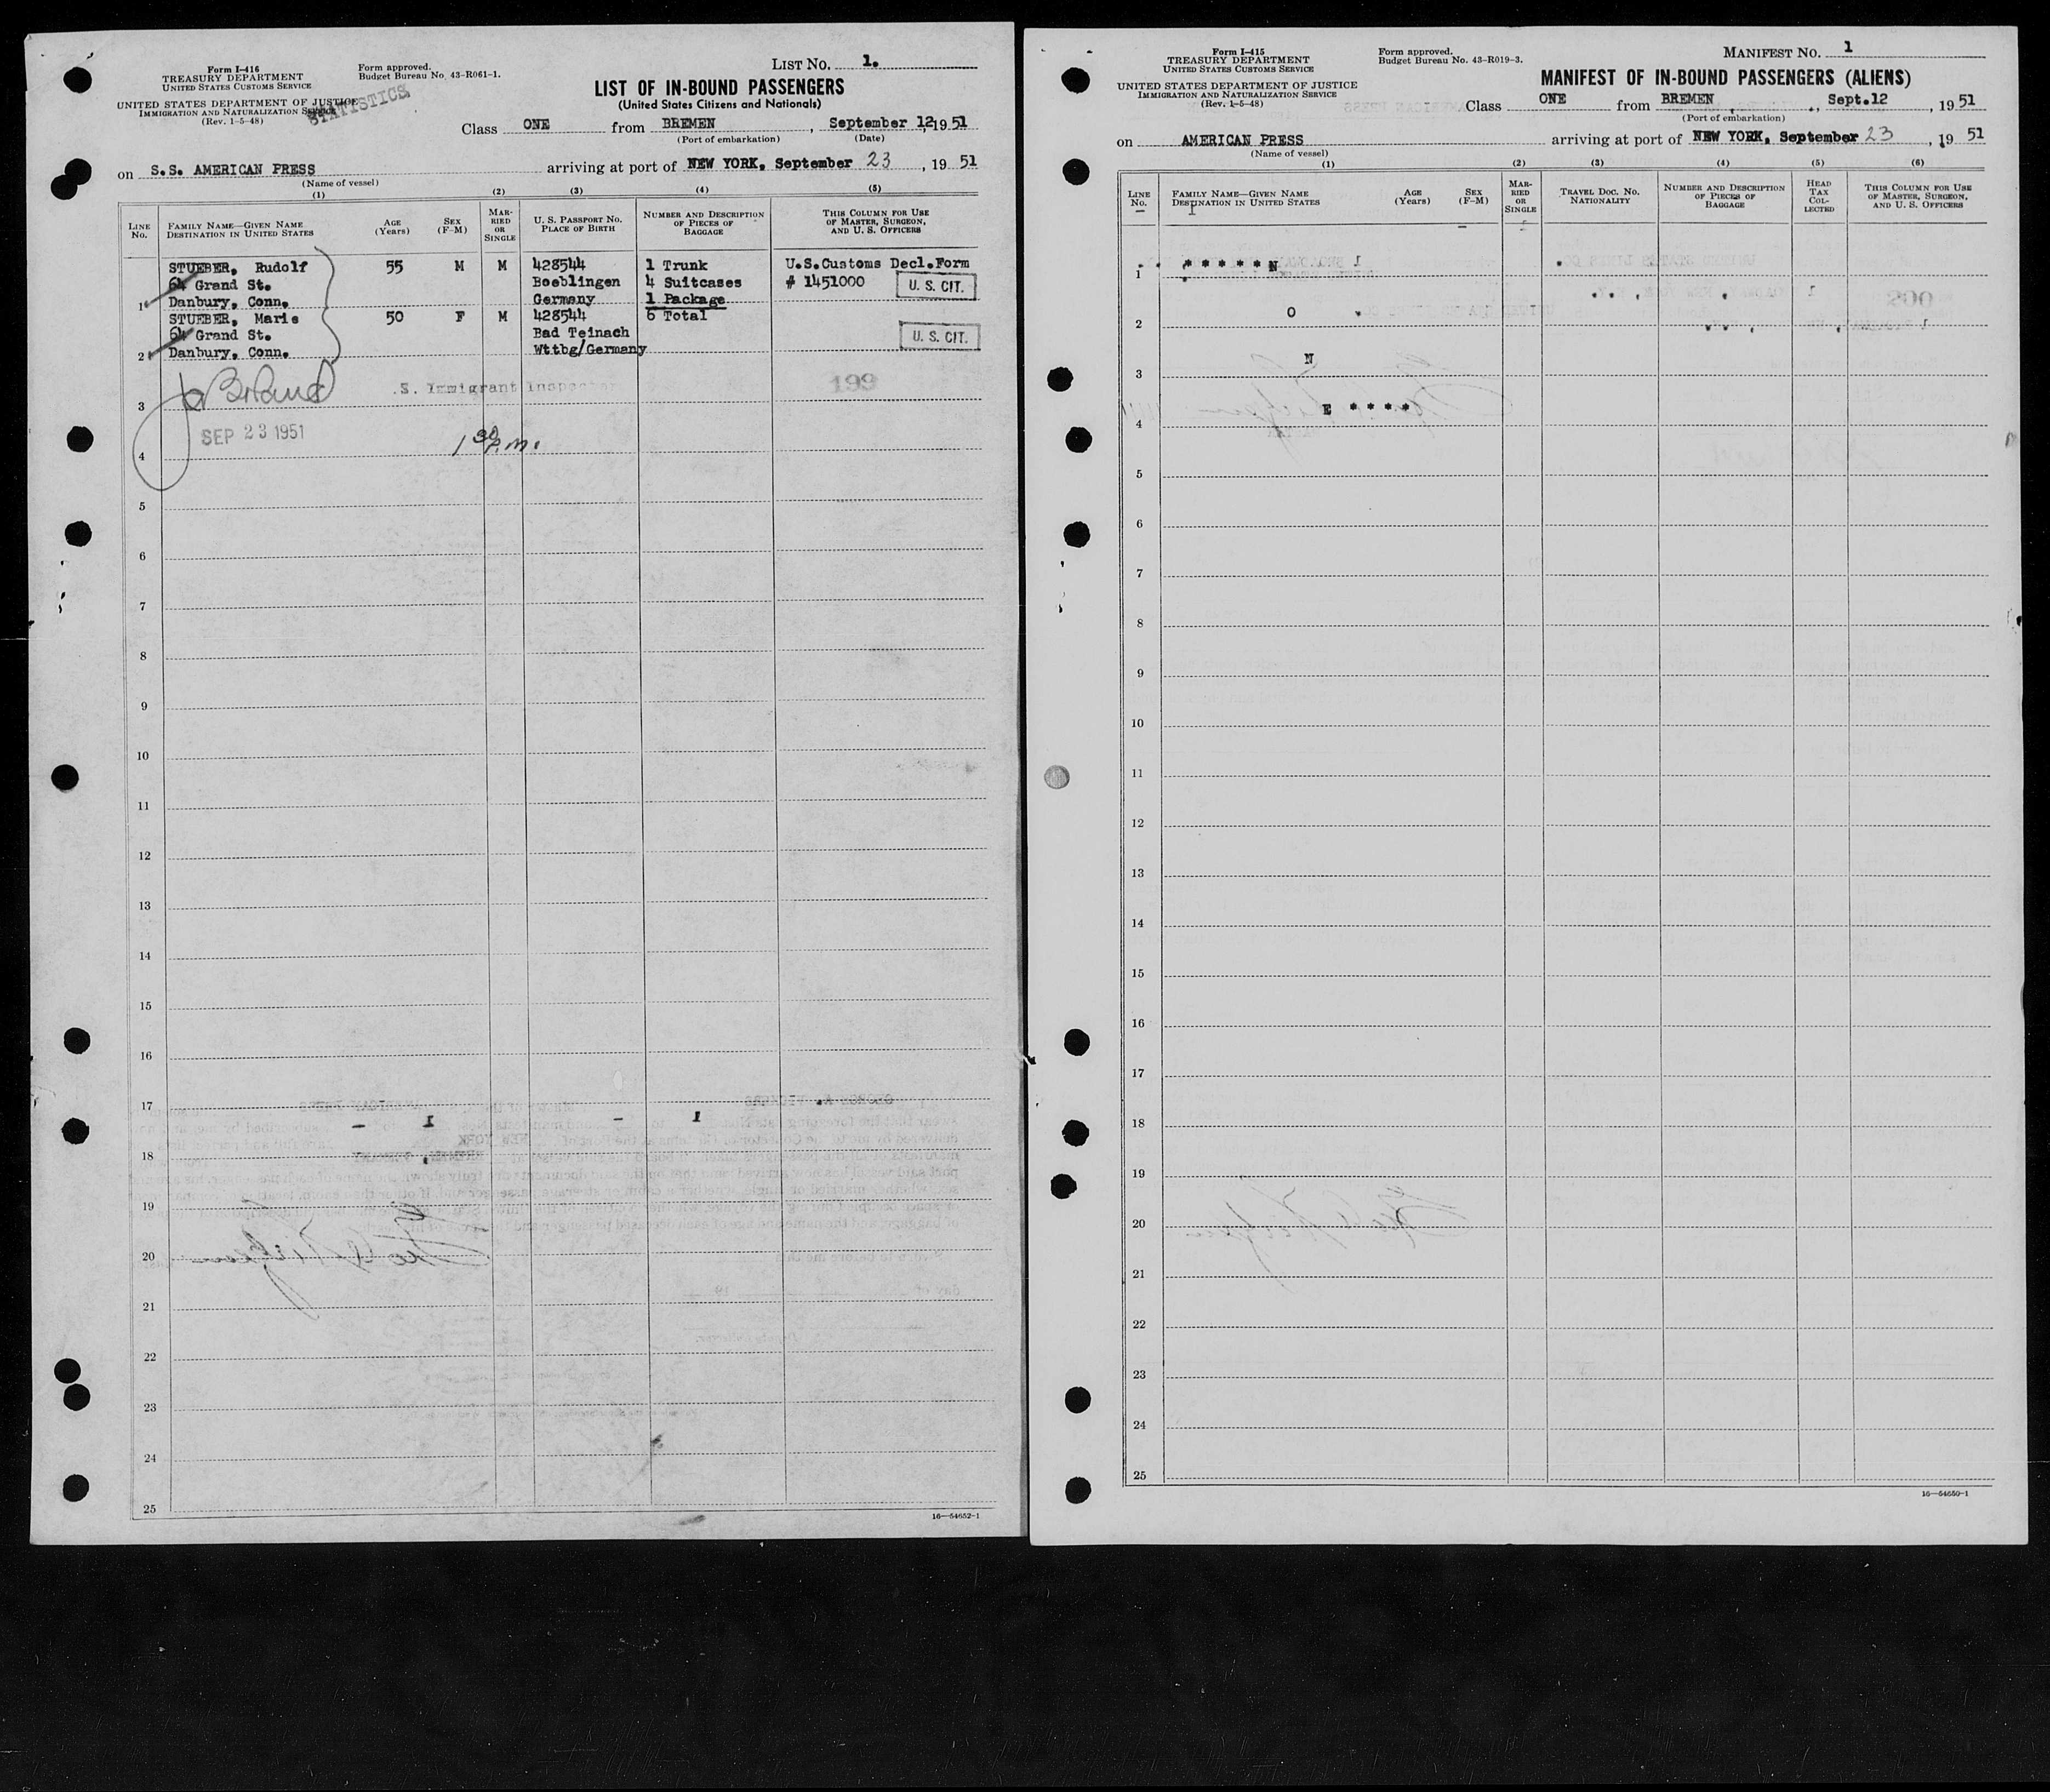 Form I-416
TREASURY DEPARTMENT
UNITED STATES CUSTOMS SERVICE
UNITED STATES DEPARTMENT OF JUSTICE
IMMIGRATION AND NATURALIZATION SERVICE
(Rev. 1-5-48)
STATISTICS
Form approved.
Budget Bureau No. 43-R061-1.
LIST NO. 1.
LIST OF IN-BOUND PASSENGERS
(United States Citizens and Nationals)
Class ONE from BREMEN, September 12, 1951
(Port of embarkation) (Date)
on S.S. AMERICAN PRESS arriving at port of NEW YORK, September 23, 1951
(Name of vessel)
(1) (2) (3) (4) (5)
LINE No. FAMILY NAME—GIVEN NAME DESTINATION IN UNITED STATES AGE (Years) SEX (F-M) MARRIED OR SINGLE U. S. PASSPORT NO. PLACE OF BIRTH NUMBER AND DESCRIPTION OF PIECES OF BAGGAGE THIS COLUMN FOR USE OF MASTER, SURGEON, AND U. S. OFFICERS
STUEBER, Rudolf 55 M M 428544 1 Trunk U.S.Customs Decl.Form
64 Grand St. Boeblingen 4 Suitcases # 1451000 U. S. CIT.
1 Danbury, Conn. Germany 1 Package
STUEBER, Marie 50 F M 428544 6 Total
64 Grand St. Bad Teinach U. S. CIT.
2 Danbury, Conn. Wttbg/Germany
.S. Immigrant Inspector 199
3
SEP 23 1951 1 30 p.m.
4
5
6
7
8
9
10
11
12
13
14
15
16
17
18
19
20
21
22
23
24
25
16—54652-1
Form I-415
TREASURY DEPARTMENT
UNITED STATES CUSTOMS SERVICE
UNITED STATES DEPARTMENT OF JUSTICE
IMMIGRATION AND NATURALIZATION SERVICE
(Rev. 1-5-48)
Form approved.
Budget Bureau No. 43-R019-3.
MANIFEST NO. 1
MANIFEST OF IN-BOUND PASSENGERS (ALIENS)
Class ONE from BREMEN, Sept.12, 1951
(Port of embarkation)
on AMERICAN PRESS arriving at port of NEW YORK, September 23, 1951
(Name of vessel)
(1) (2) (3) (4) (5) (6)
LINE No. FAMILY NAME—GIVEN NAME DESTINATION IN UNITED STATES AGE (Years) SEX (F-M) MARRIED OR SINGLE TRAVEL DOC. NO. NATIONALITY NUMBER AND DESCRIPTION OF PIECES OF BAGGAGE HEAD TAX COLLECTED THIS COLUMN FOR USE OF MASTER, SURGEON, AND U. S. OFFICERS
1 * * * * * N
2 O
3 N
4 E * * * *
5
6
7
8
9
10
11
12
13
14
15
16
17
18
19
20
21
22
23
24
25
16—54650-1